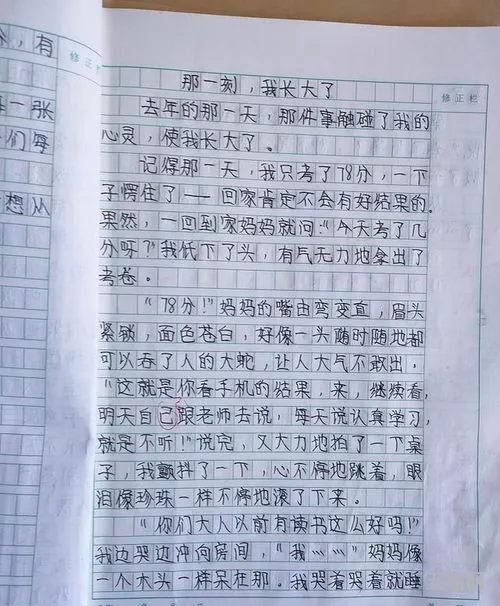 ，有
一张
们每
想从
修正栏
修正栏
那一刻，我长大了
去年的那一天，那件事触碰了我的
心灵，使我长大了。
记得那一天，我只考了78分，一下
子愣住了——回家肯定不会有好结果的。
果然，一回到家妈妈就问："今天考了几
分呀？"我低下了头，有气无力地拿出了
考卷。
"78分！"妈妈的嘴由弯变直，眉头
紧锁，面色苍白，好像一头随时随地都
可以吞了人的大蛇，让人大气不敢出，
"这就是你看手机的结果，来，继续看，
明天自己跟老师去说，每天说认真学习，
就是不听！"说完，又大力地拍了一下桌
子，我颤抖了一下，心不停地跳着，眼
泪像珍珠一样不停地滚了下来。
"你们大人以前有读书这么好吗！"
我边哭边冲向房间，"我……"妈妈像
一个木头一样呆在那。我哭着哭着就睡